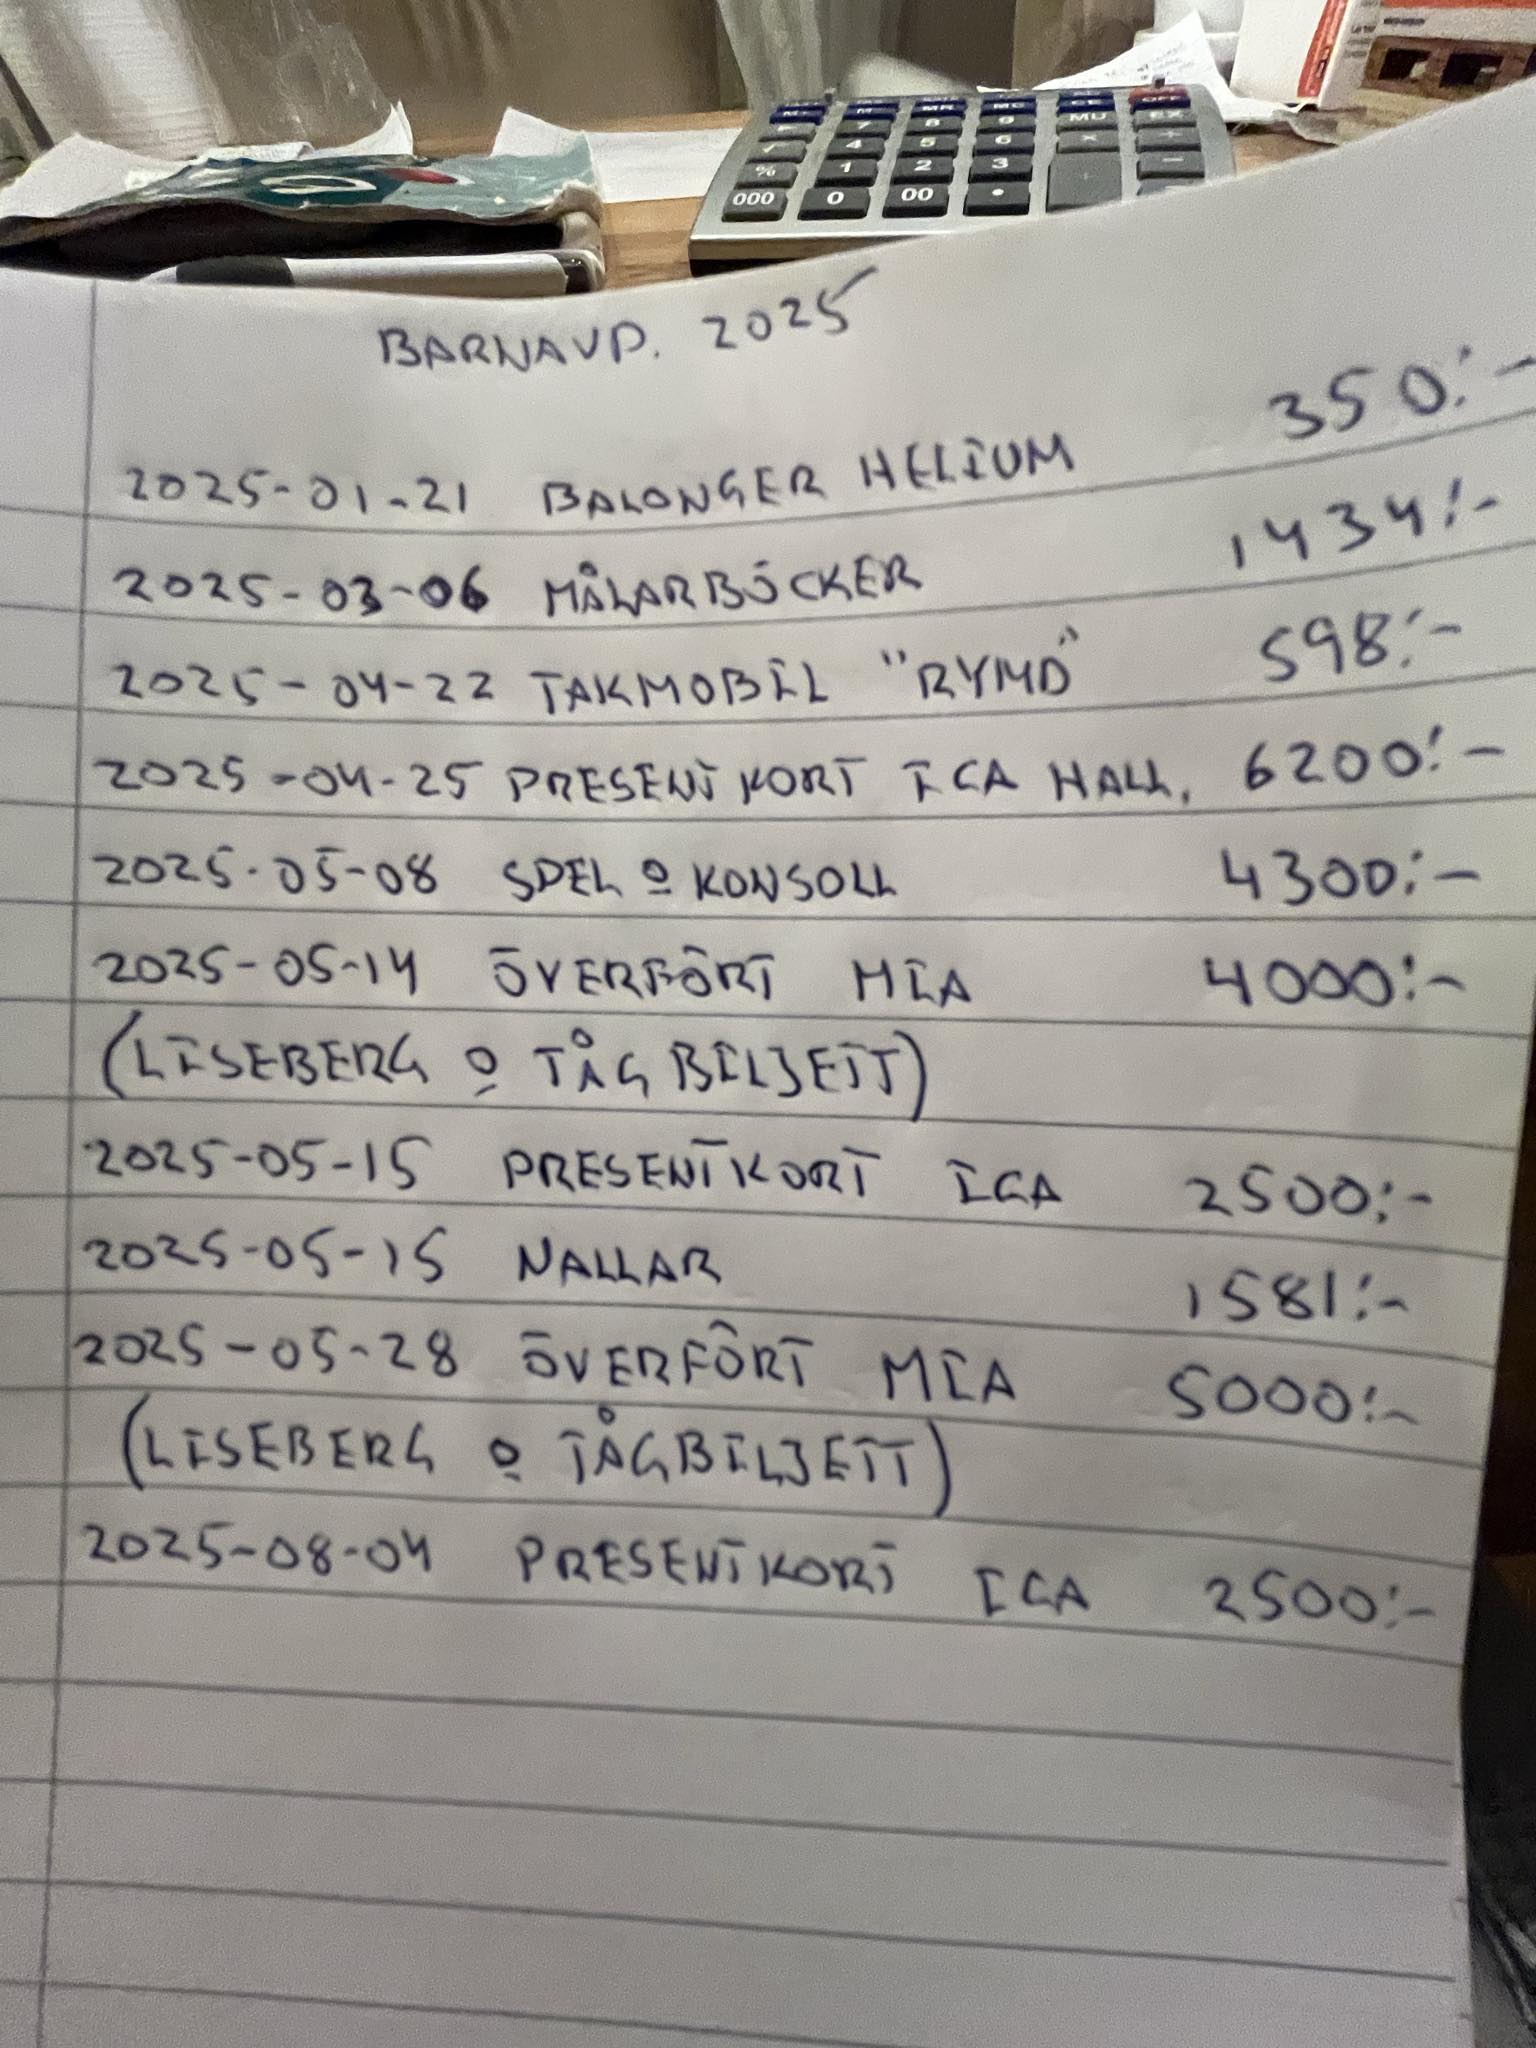 MU
EX
7
8
9
×
+
√
4
5
6
−
%
1
2
3
000
0
00
BARNAVD. 2025
2025-01-21 BALONGER HELIUM 350:-
2025-03-06 MÅLARBÖCKER 1434:-
2025-04-22 TAKMOBIL "RYMD" 598:-
2025-04-25 PRESENTKORT ICA HALL. 6200:-
2025-05-08 SPEL O KONSOLL 4300:-
2025-05-14 ÖVERFÖRT MIA 4000:-
(LISEBERG O TÅGBILJETT)
2025-05-15 PRESENTKORT ICA 2500:-
2025-05-15 NALLAR 1581:-
2025-05-28 ÖVERFÖRT MIA 5000:-
(LISEBERG O TÅGBILJETT)
2025-08-04 PRESENTKORT ICA 2500:-